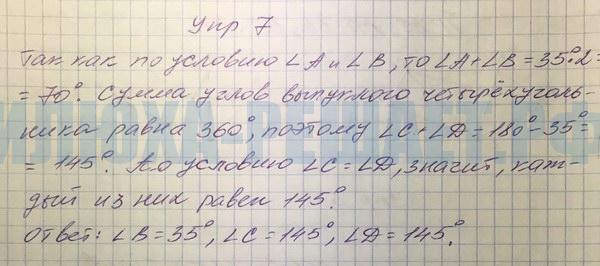 Упр 7
Так как по условию ∠A и ∠B, то ∠A+∠B=35°·2=
=70°. Сумма углов выпуклого четырёхуголь-
ника равна 360°, поэтому ∠C+∠D=180°-35°=
=145°. По условию ∠C=∠D, значит, каж-
дый из них равен 145°.
Ответ: ∠B=35°, ∠C=145°, ∠D=145°.